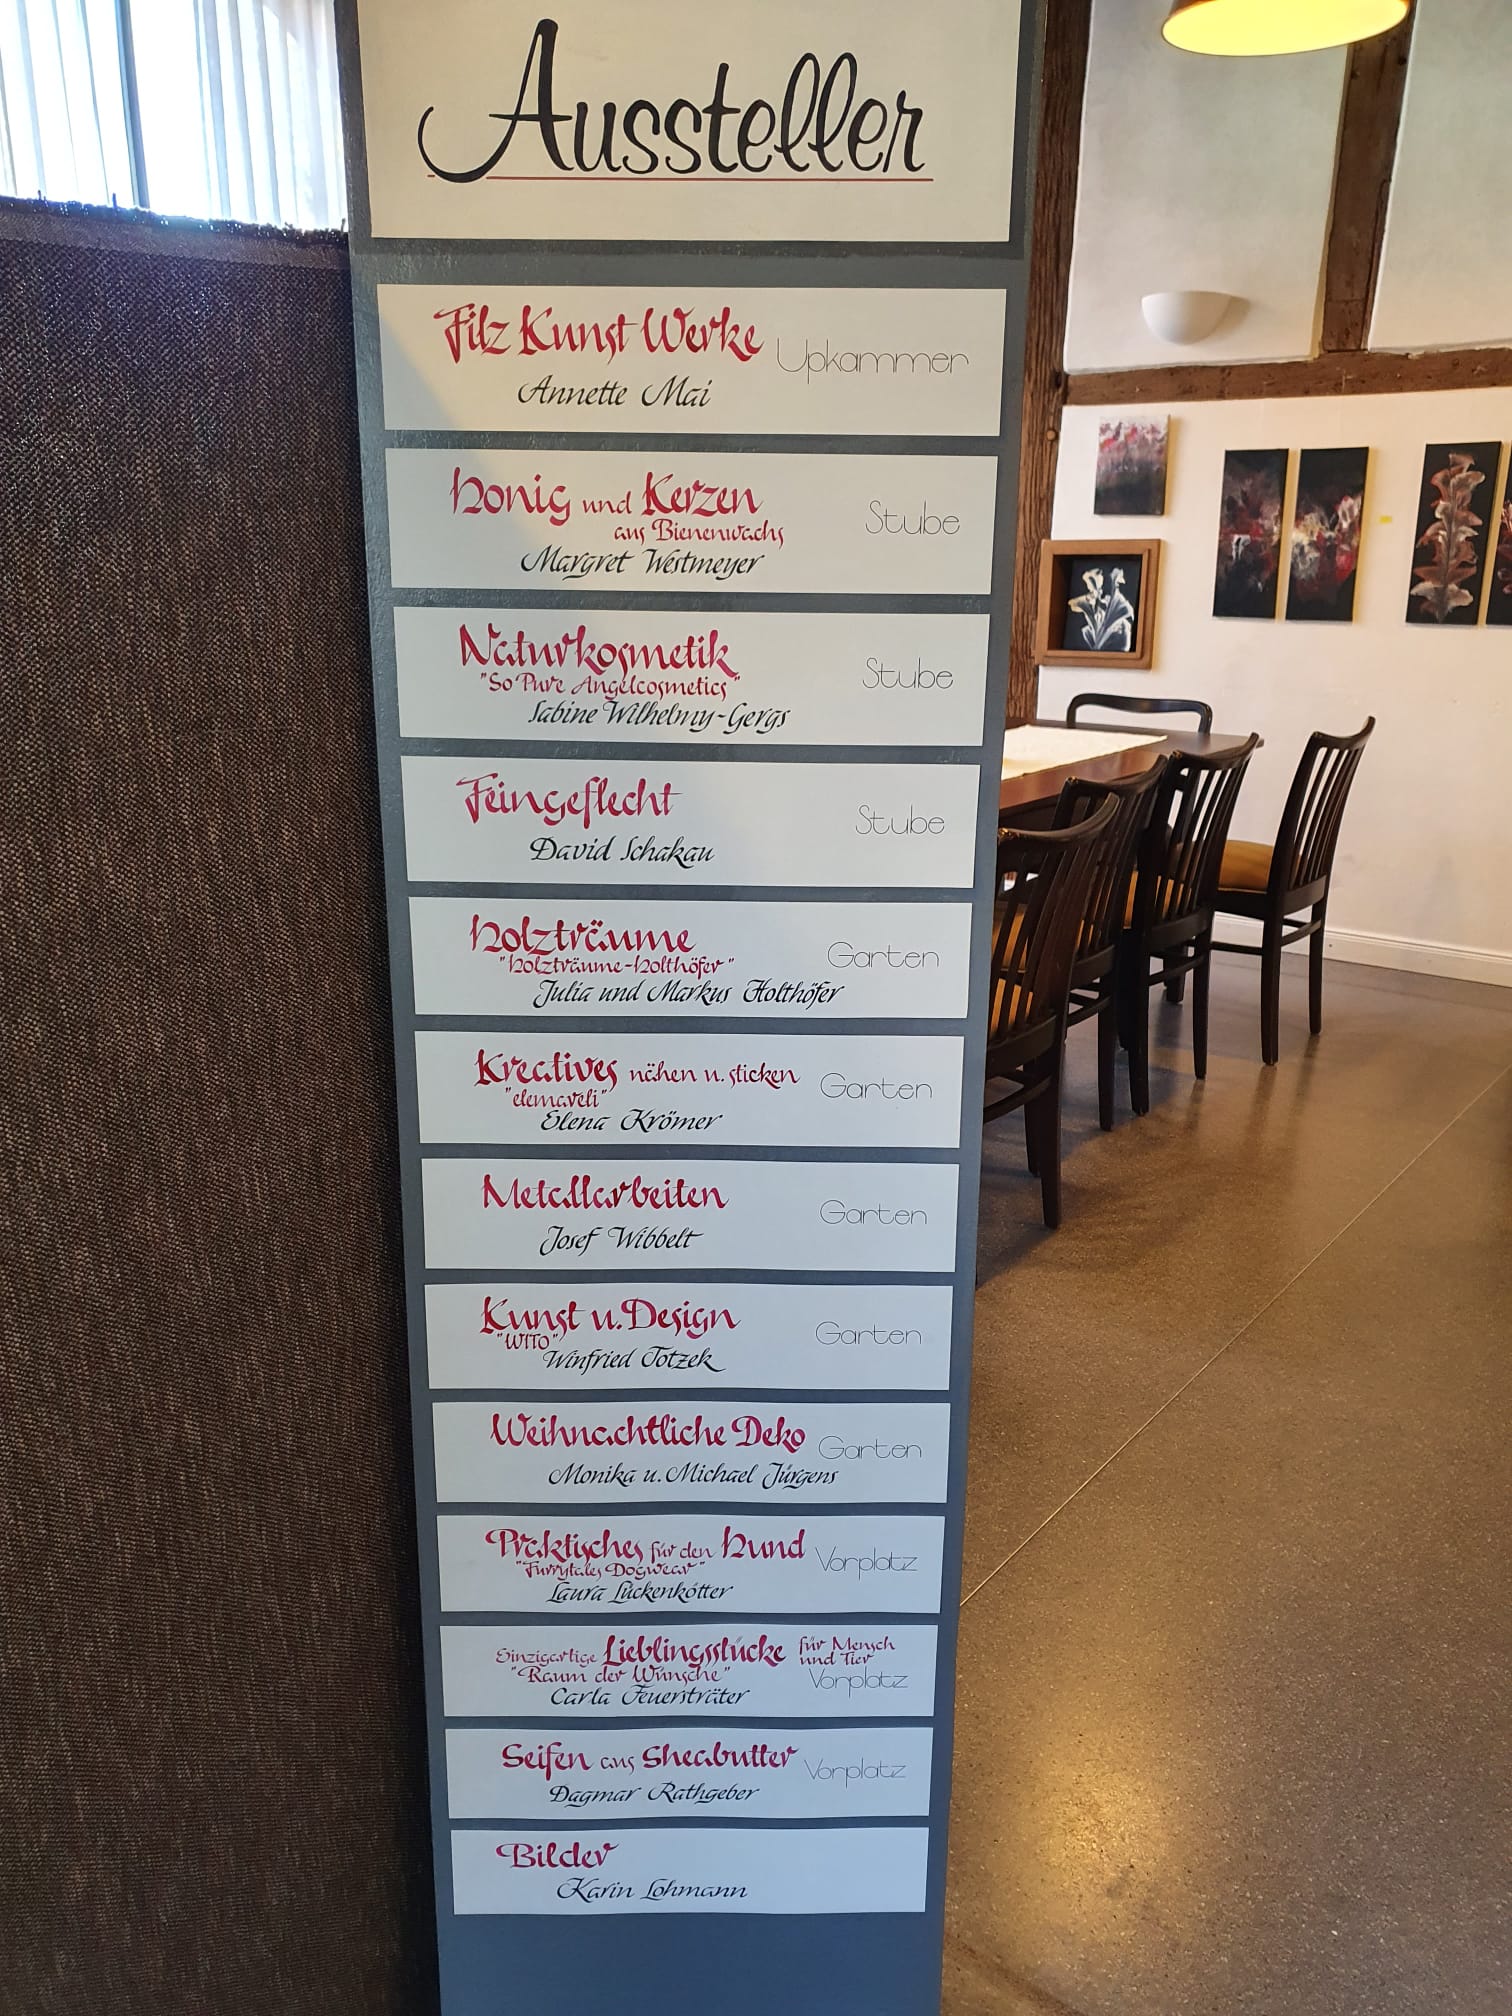 Aussteller
Filz Kunst Werke Upkammer
Annette Mai
Honig und Kerzen Stube
aus Bienenwachs
Margret Westmeyer
Naturkosmetik Stube
"So Pure Angelcosmetics"
Sabine Wilhelmy-Gergs
Feingeflecht Stube
David Schakau
Holzträume Garten
"Holzträume-Holthöfer"
Julia und Markus Holthöfer
Kreatives nähen u. sticken Garten
"elemaveli"
Elena Krömer
Metallarbeiten Garten
Josef Wibbelt
Kunst u. Design Garten
"WITO"
Winfried Totzek
Weihnachtliche Deko Garten
Monika u. Michael Jürgens
Praktisches für den Hund Vorplatz
"Furrytales Dogwear"
Laura Lückenkötter
Einzigartige Lieblingsstücke für Mensch
und Tier
"Raum der Wünsche" Vorplatz
Carla Feuersträter
Seifen aus Sheabutter Vorplatz
Dagmar Rathgeber
Bilder
Karin Lohmann